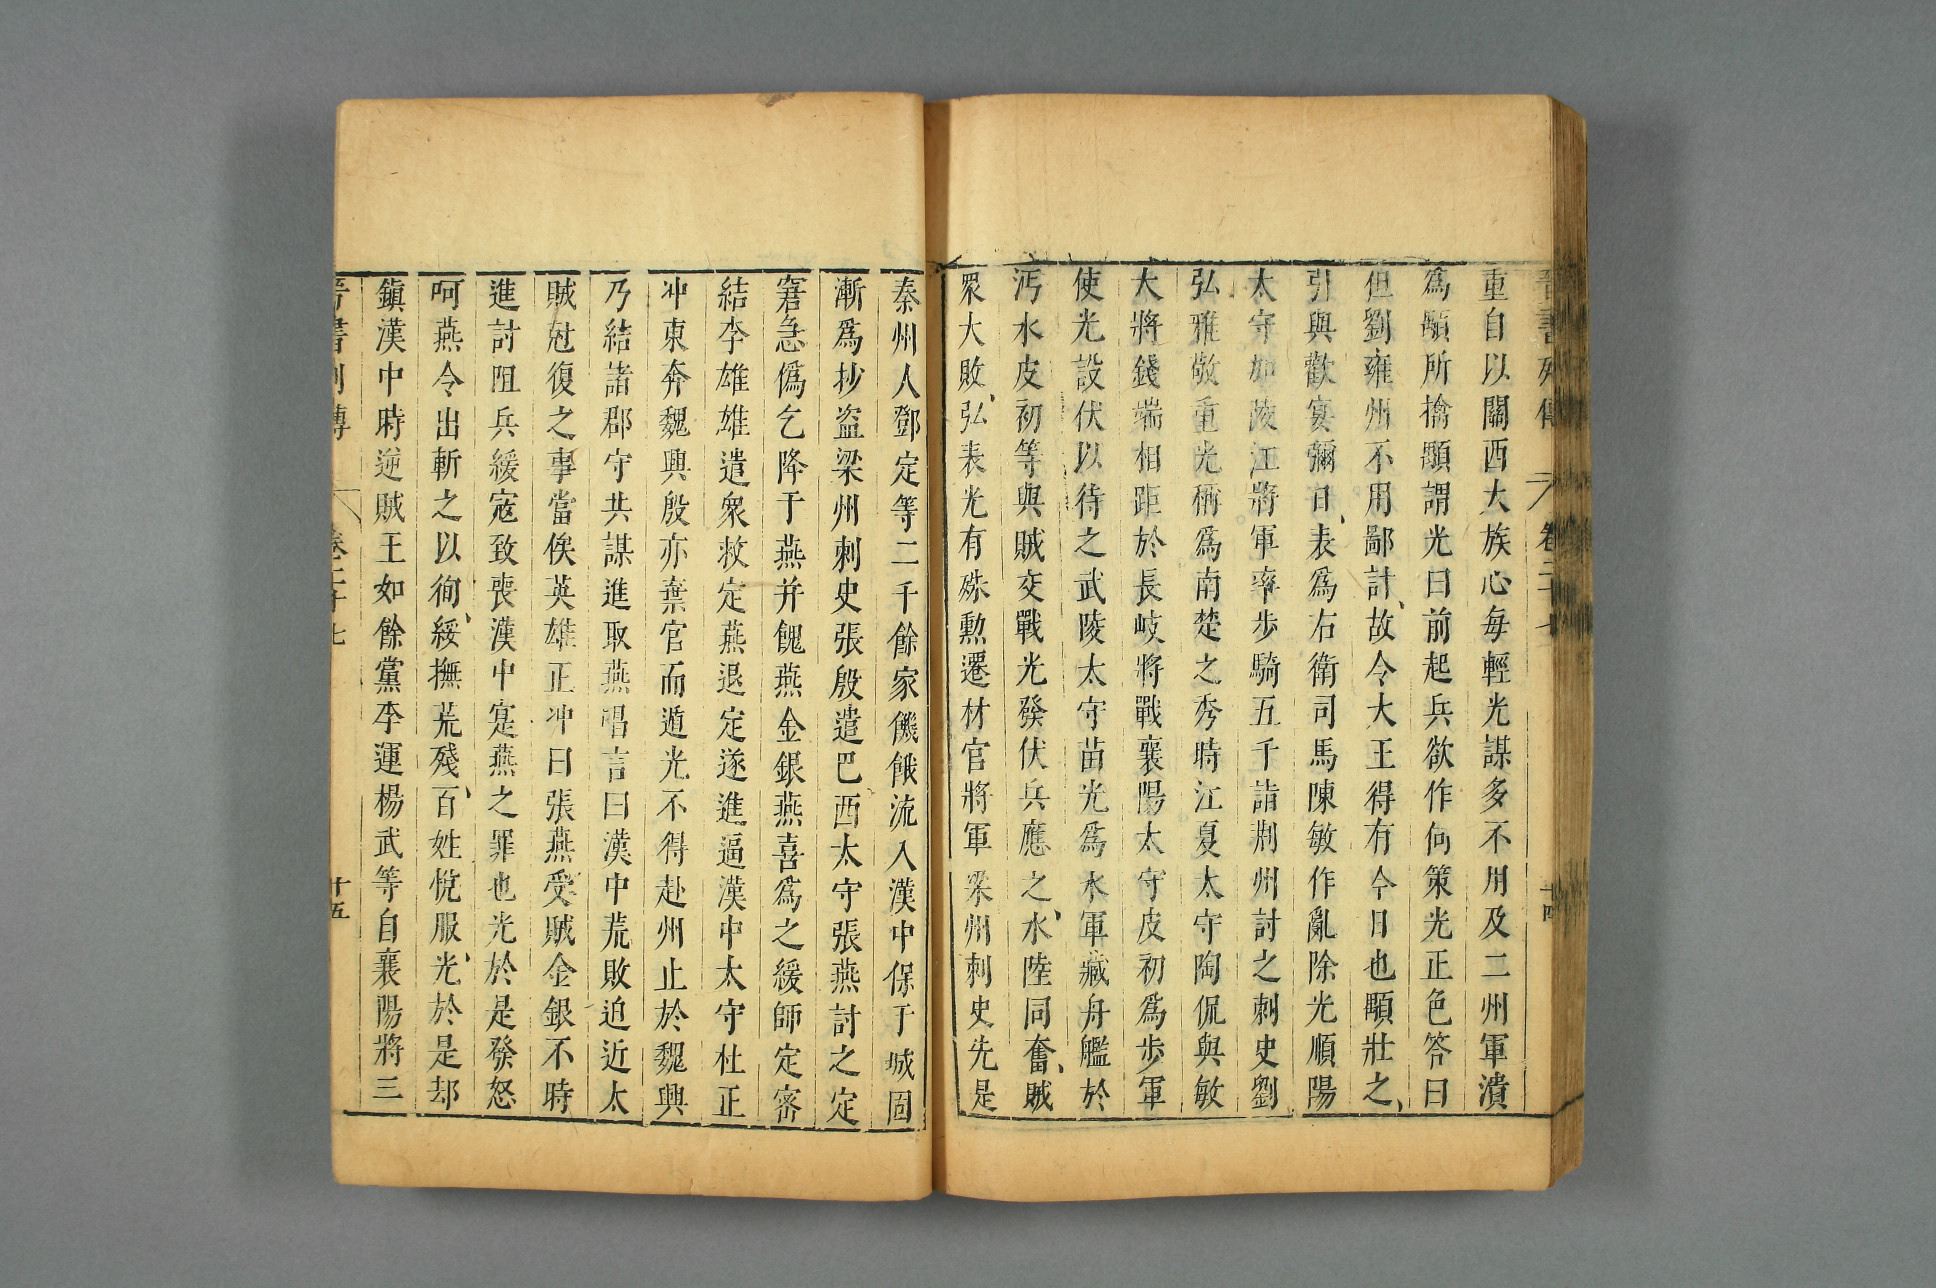 晉書列傳 卷二十七 十四
重自以關西大族心每輕光謀多不用及二州軍潰
爲顒所擒顒謂光曰前起兵欲作何策光正色答曰
但劉雍州不用鄙計故令大王得有今日也顒壯之
引與歡宴彌日表爲右衛司馬陳敏作亂除光順陽
太守加陵江將軍率步騎五千詣荆州討之刺史劉
弘雅敬重光稱爲南楚之秀時江夏太守陶侃與敏
大將錢端相距於長岐將戰襄陽太守皮初爲步軍
使光設伏以待之武陵太守苗光爲水軍藏舟艦於
沔水皮初等與賊交戰光發伏兵應之水陸同奮賊
眾大敗弘表光有殊勲遷材官將軍梁州刺史先是
秦州人鄧定等二千餘家饑餓流入漢中保于城固
漸爲抄盜梁州刺史張殷遣巴西太守張燕討之定
窘急僞乞降于燕并餽燕金銀燕喜爲之緩師定密
結李雄雄遣眾救定燕退定遂進逼漢中太守杜正
冲東奔魏興殷亦棄官而遁光不得赴州止於魏興
乃結諸郡守共謀進取燕唱言曰漢中荒敗迫近太
賊尅復之事當俟英雄正冲曰張燕受賊金銀不時
進討阻兵緩寇致喪漢中寔燕之罪也光於是發怒
呵燕令出斬之以徇綏撫荒殘百姓悅服光於是却
鎭漢中時逆賊王如餘黨李運楊武等自襄陽將三
晉書列傳 卷二十七 十五